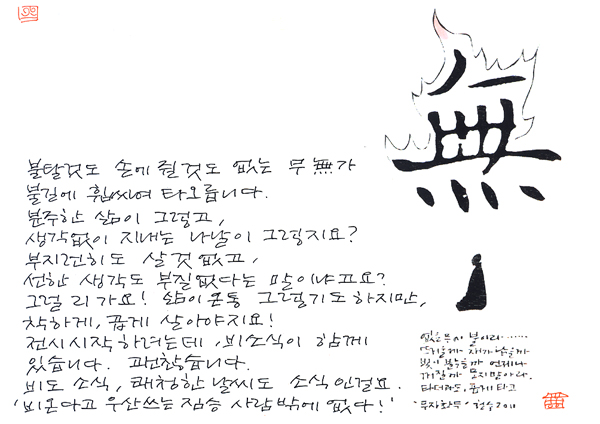 無
불탈것도 손에 쥘 것도 없는 무無가
불길에 휩싸여 타오릅니다.
분주한 삶이 그렇고,
생각없이 지내는 나날이 그렇지요?
부지런히도 살 것 없고,
선한 생각도 부질없다는 말이냐고요?
그럴 리가요! 삶이 온통 그렇기도 하지만,
착하게, 곱게 살아야지요!
전시시작하려는데, 비소식이 함께
있습니다. 괜찮습니다.
비도 소식, 쾌청한 날씨도 소식인걸요.
'비온다고 우산쓰는 짐승 사람밖에 없다!'
불이라······
재가 남을까
빛이 언제나
꺼질까 묻지말아라.
타더라도, 곱게 타고
'무자화두' 철수 2011